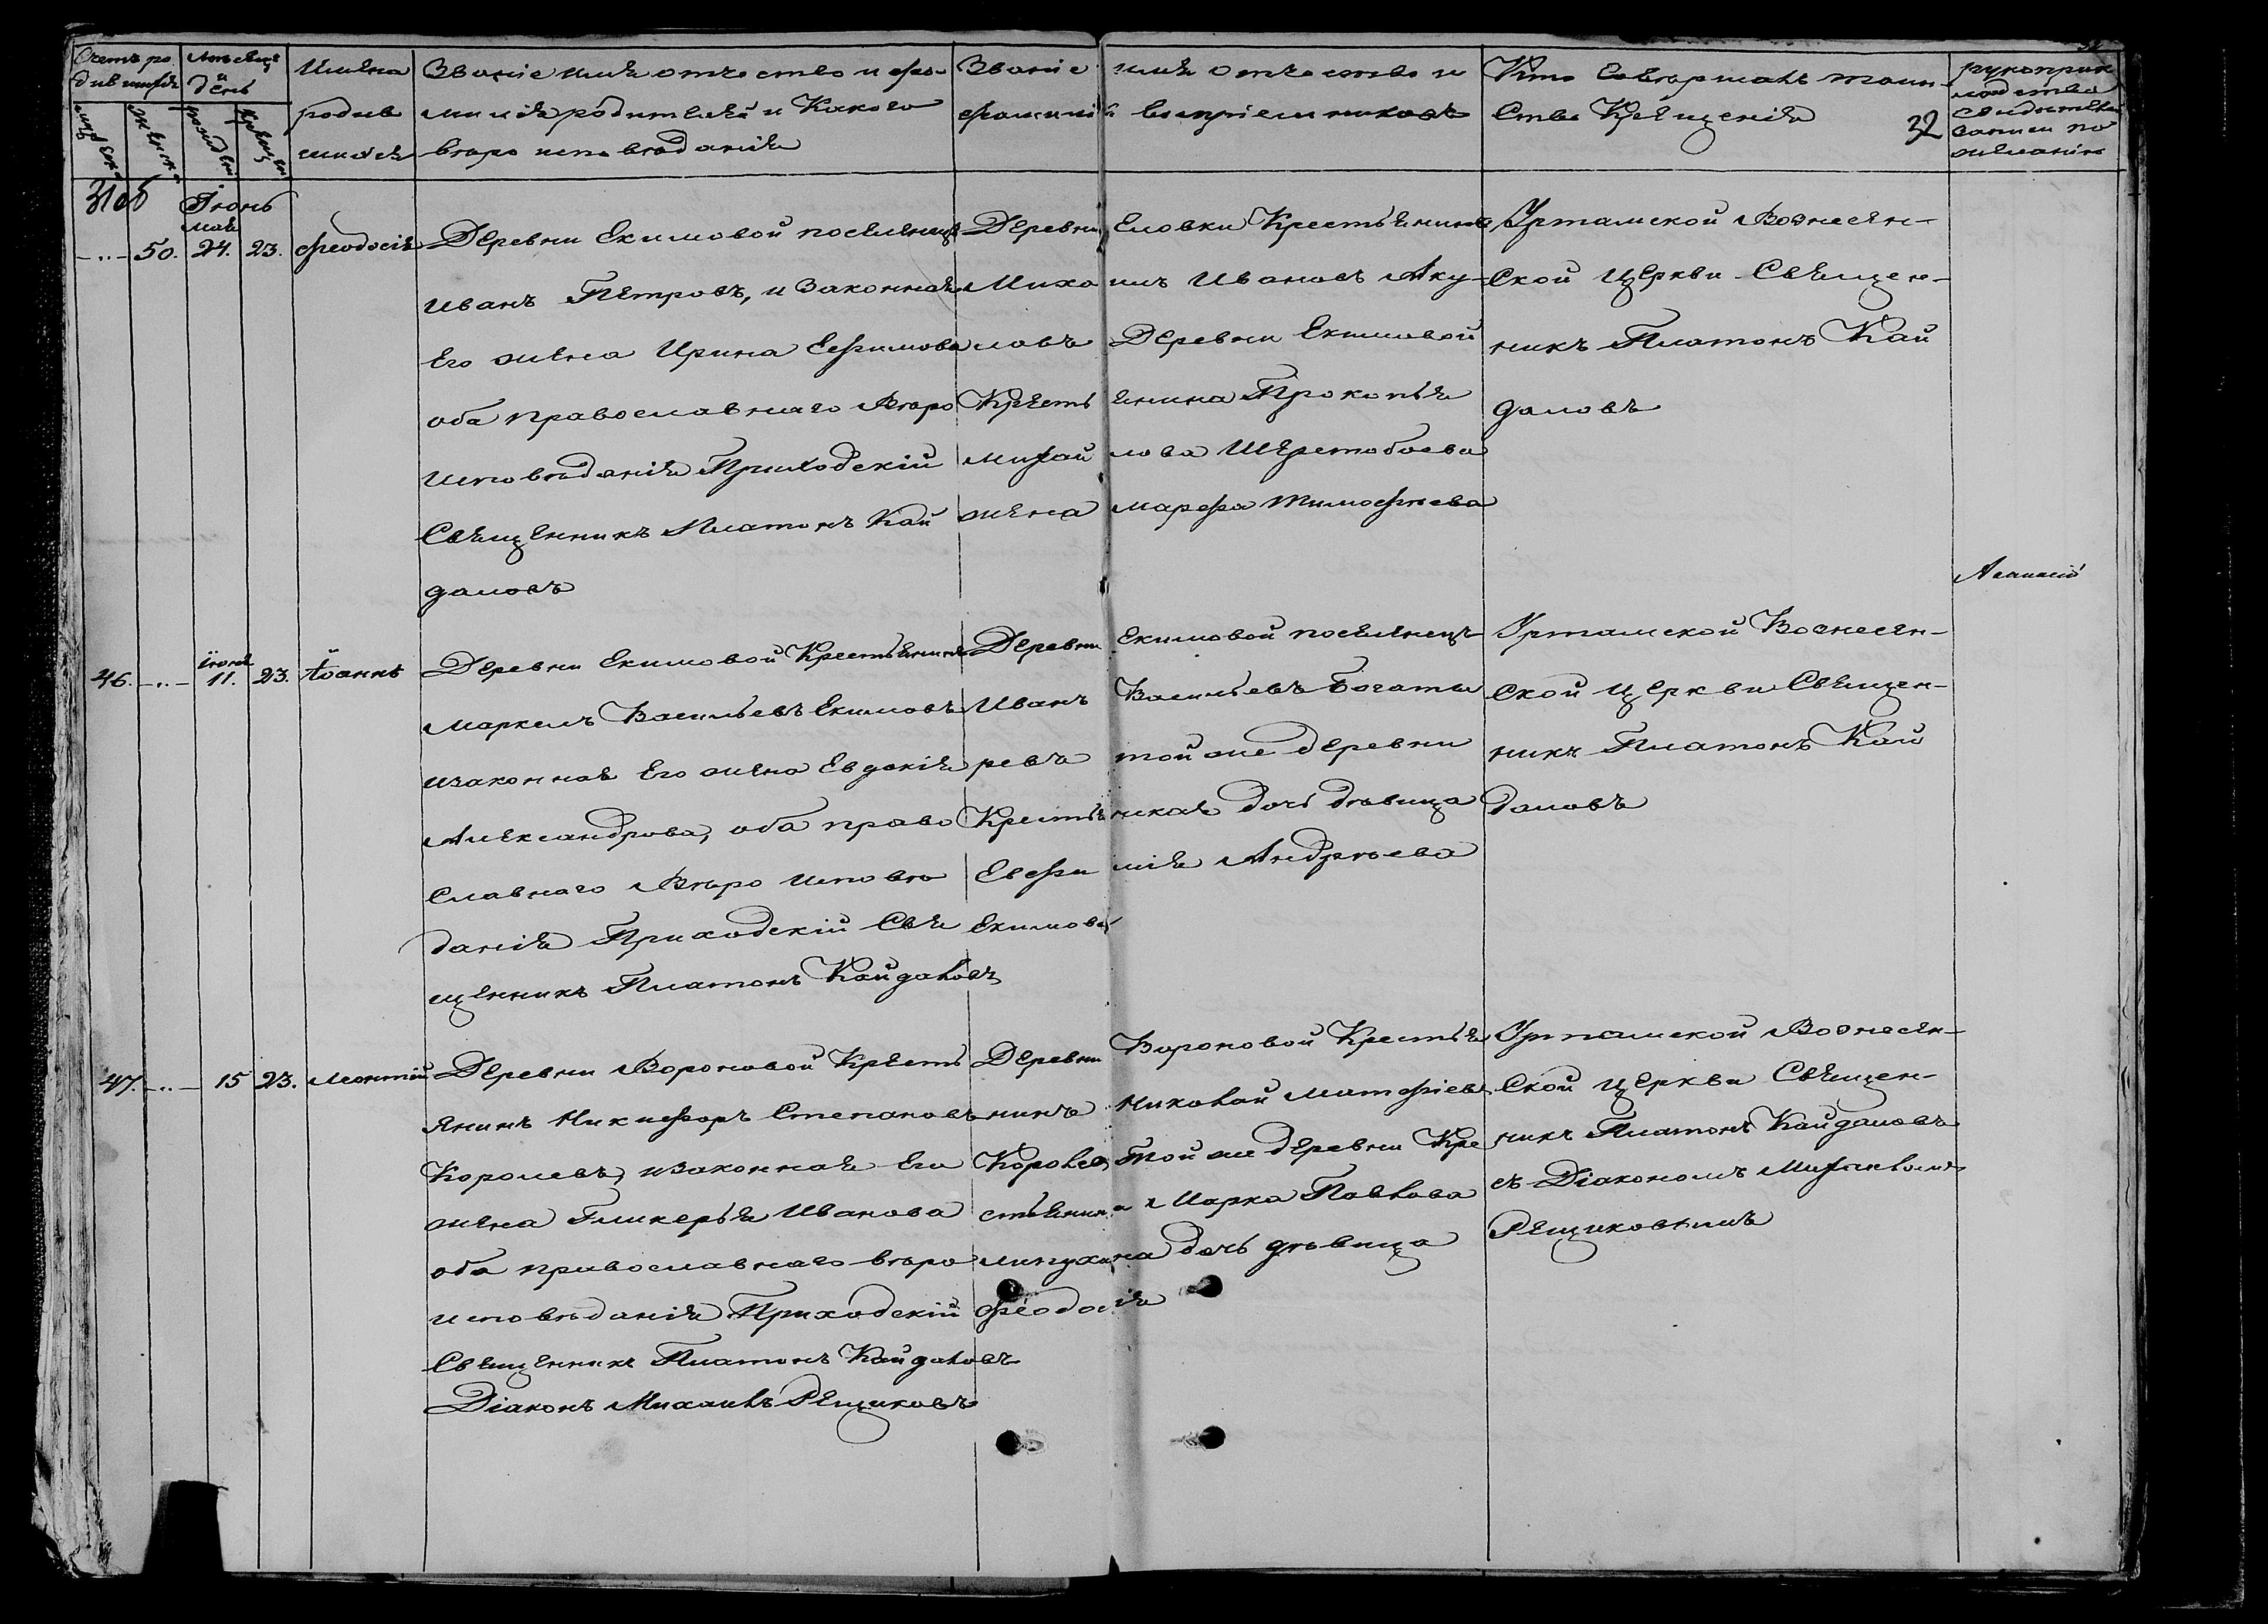 Счетъ ро
дившихся
Мѣсяцъ
и
день
Имена
родив
шихся
Званіе имя отчество и фа-
милія родителей и какого
вѣро исповѣданія
Званіе имя отчество и
фамилія воспріемниковъ
Кто совершалъ таин-
ство Крещенія
32
рукоприк
ладство
свидѣтелей
записи по
желанію
31об
Іюнь
мая
-..- 50. 24. 23. Феодосія
Деревни Екимовой поселенецъ
Иванъ Петровъ, и законная
Его жена Ирина Ефимова
оба православнаго вѣро
исповѣданія Приходскій
Священникъ Платонъ Кай
даловъ
Деревни Еловки Крестьянинъ
Михаилъ Ивановъ Аку-
ловъ Деревни Екимовой
Крестьянина Прокопья
Михайлова Шерстобоева
жена Марфа Тимофѣева
Уртамской Вознесен-
ской церкви Священ-
никъ Платонъ Кай
даловъ
46. -..- Іюня 11. 23. Іоаннъ
Деревни Екимовой Крестьянинъ
Маркелъ Васильевъ Екимовъ
изаконная Его жена Евдокія
Александрова, оба право
славнаго вѣро исповѣ
данія Приходскій Свя
щенникъ Платонъ Кайдаловъ
Деревни Екимовой поселенецъ
Иванъ Васильевъ Богаты
ревъ той же деревни
Крестьянская дочь дѣвица
Евфимія Андрѣева
Екимова
Уртамской Вознесен-
ской церкви Священ-
никъ Платонъ Кай
даловъ
47. -..- 15 23. Леонтій
Деревни Вороновой Кресть
янинъ Никифоръ Степановъ
Королевъ, изаконная Его
жена Гликерья Иванова
оба православнаго вѣро
исповѣданія Приходскій
Священникъ Платонъ Кайдаловъ
Діаконъ Михаилъ Рещиковъ
Деревни Вороновой Крестья
нинъ Николай Матфіевъ
Королевъ Той же деревни Кре
стьянина Марка Павлова
липухина дочь дѣвица
Феодосія
Уртамской Вознесен-
ской церкви Священ-
никъ Платонъ Кайдаловъ
съ Діакономъ Михаиломъ
Рещиковымъ